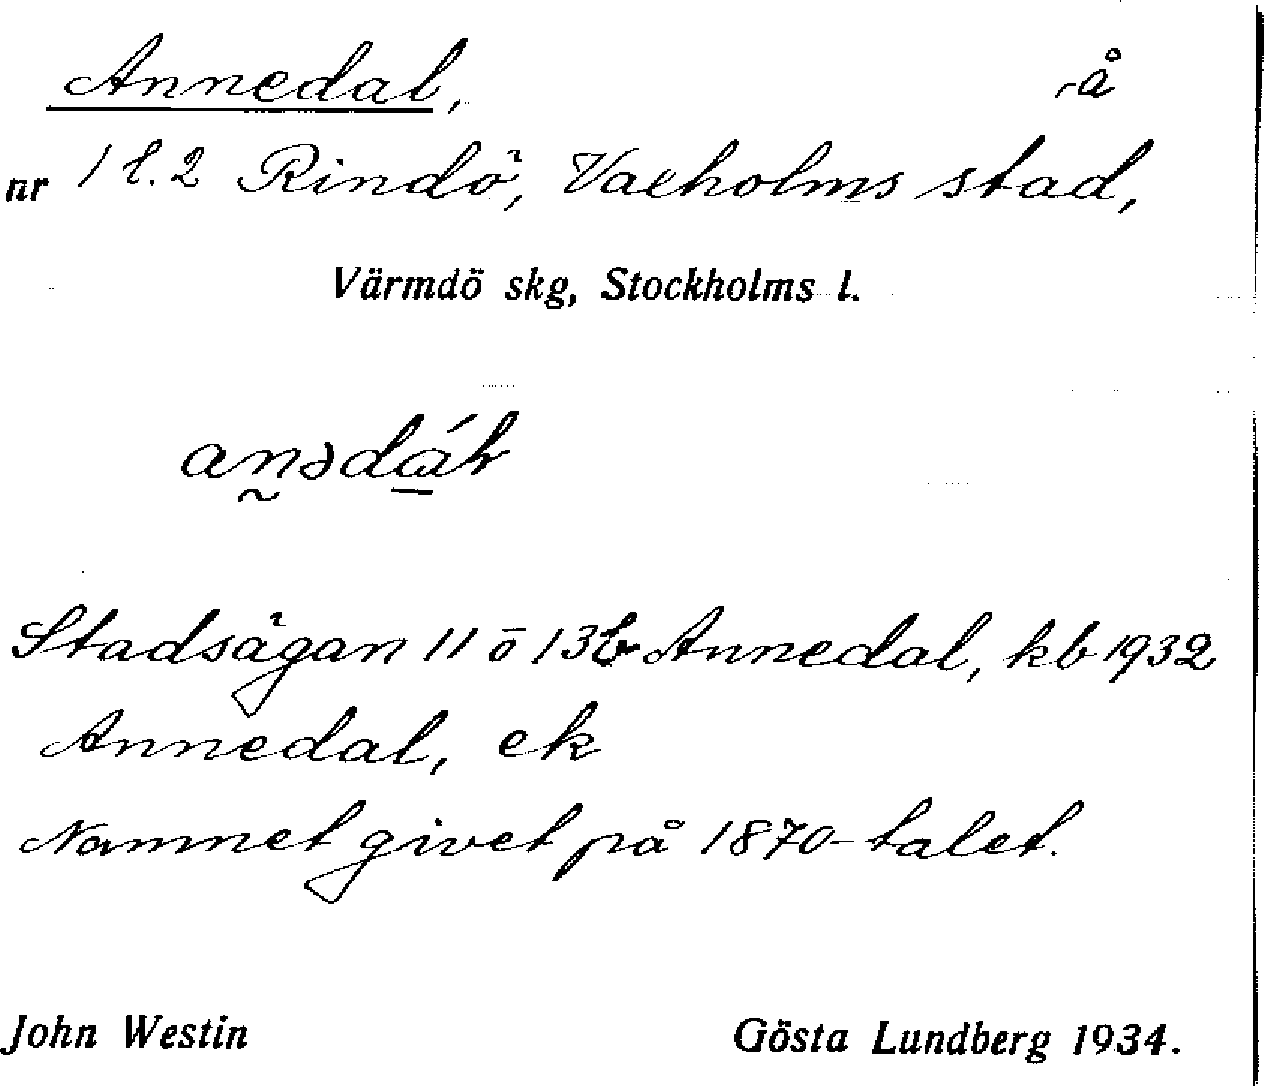 Annedal, -å
nr 1 l. 2 Rindö, Vaxholms stad,
Värmdö skg, Stockholms l.
Stadsägan 11 o 13b Annedal, kb 1932
Annedal, ek
Namnet givet på 1870-talet.
John Westin Gösta Lundberg 1934.